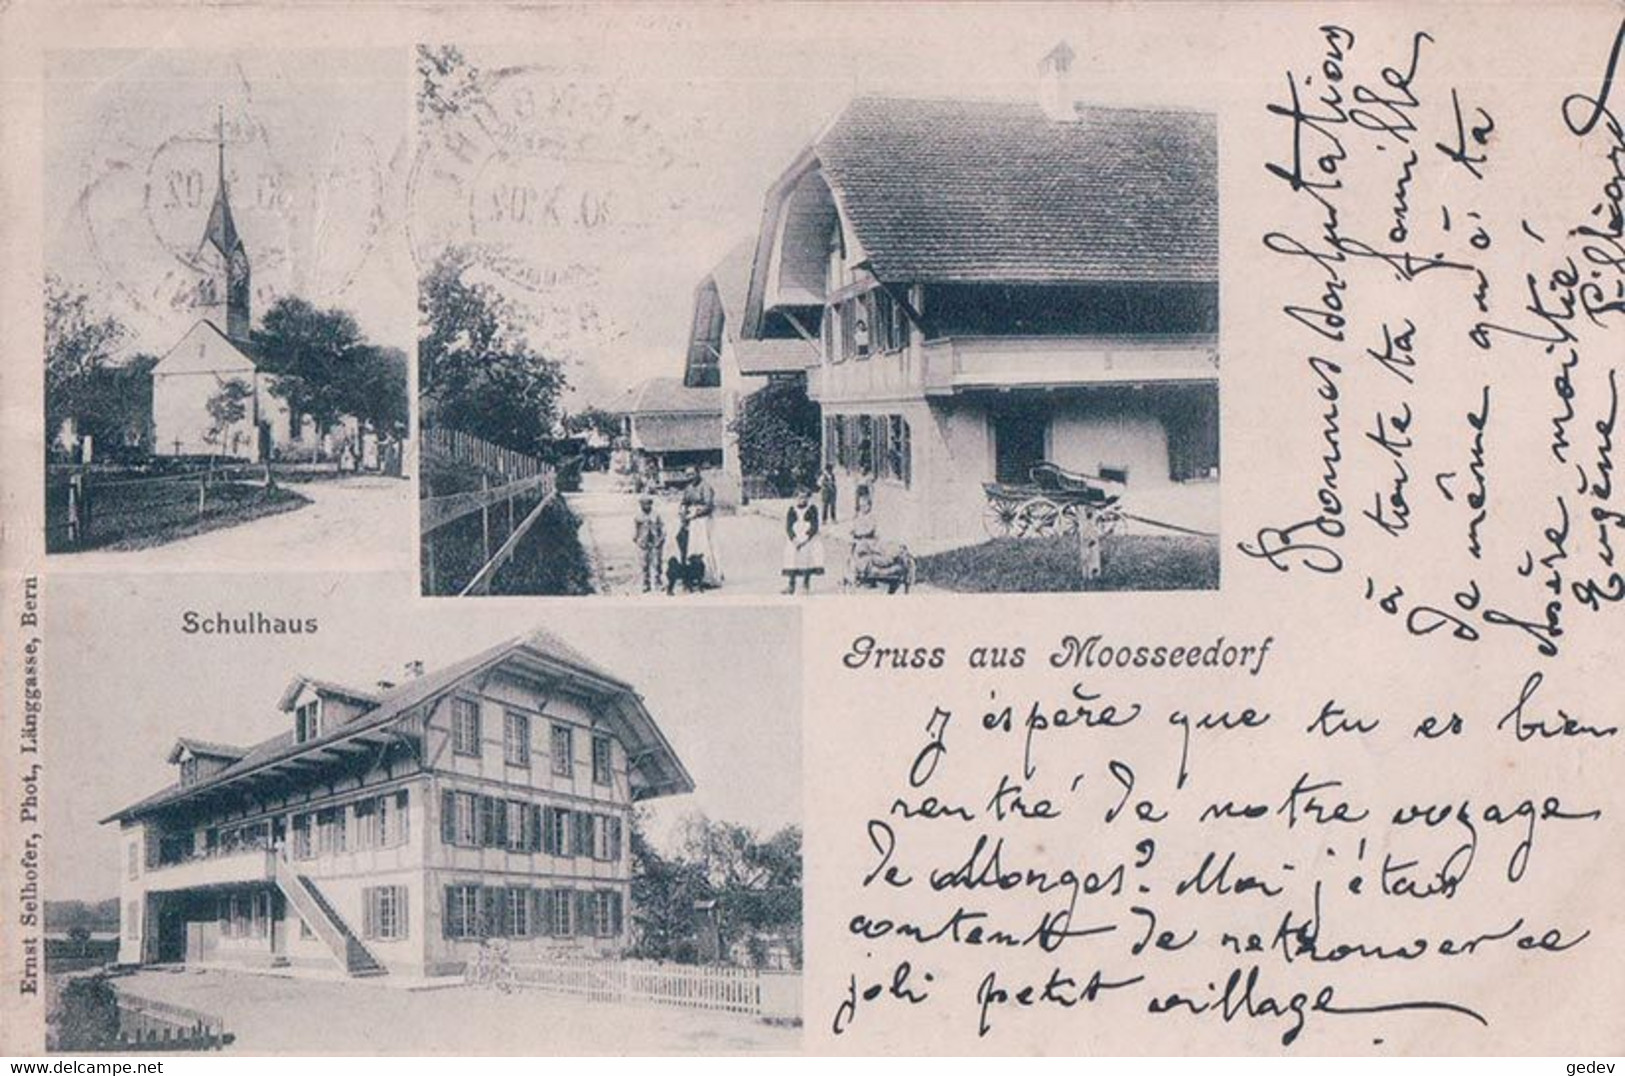 Schulhaus
Gruss aus Moosseedorf
Ernst Selhofer, Phot., Länggasse, Bern
J'éspère que tu es bien
rentré de notre voyage
de Morges? Moi j'étais
content de retrouver ce
joli petit village
Bonnes salutations
à toute ta famille
De même qu'à ta
chère moitié,
Eugène
© delcampe.net
gedev